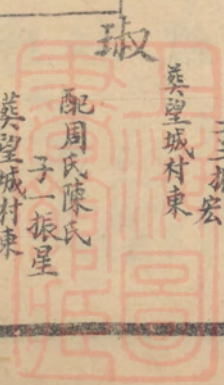 振宏
葬望城村東
琡
配周氏陳氏
子一振星
葬望城村東